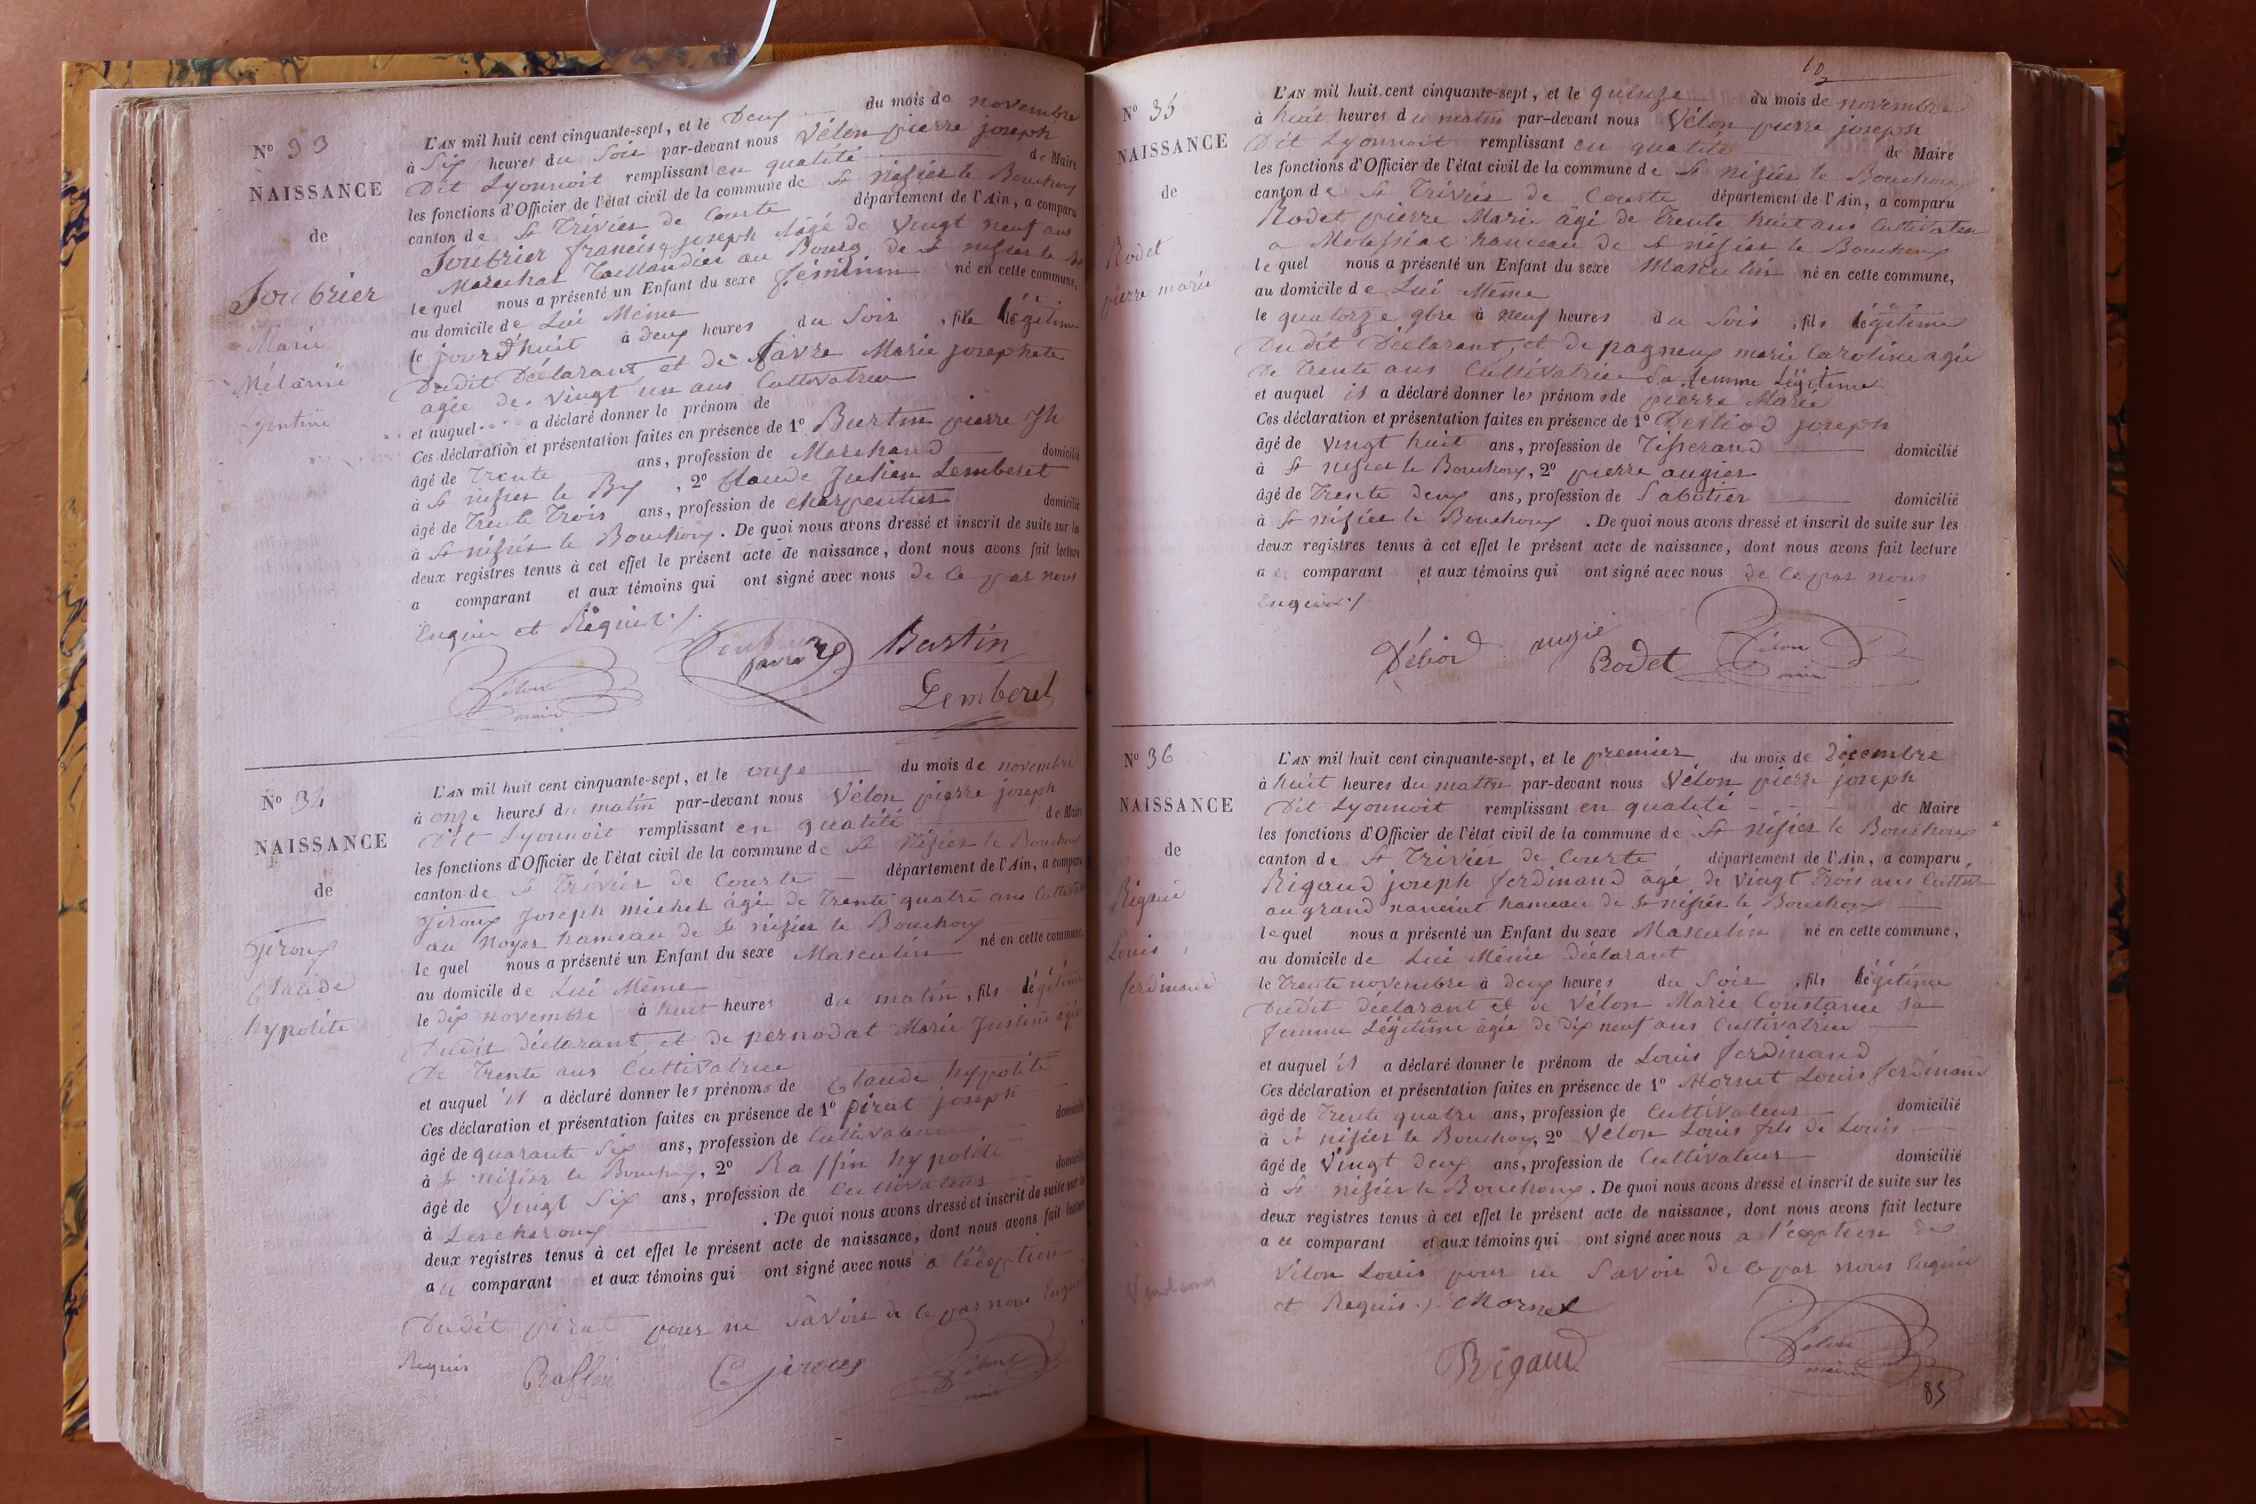 N° 33
NAISSANCE
de
Joubrier
Marie
Mélanie
L'AN mil huit cent cinquante-sept, et le Deux du mois de novembre
à Six heures du Soir par-devant nous Vélon pierre joseph
Dit Lyonnoit remplissant en qualité de Maire
les fonctions d'Officier de l'état civil de la commune de St nisier le Bouchoux
canton de St Trivier de Courte département de l'Ain, a comparu
Joubrier francisq joseph âgé de vingt neuf ans
Marechal Taillandier au Bourg de St nisier le Bx
le quel nous a présenté un Enfant du sexe féminin né en cette commune,
au domicile de Lui Même
le jourd'huit à deux heures du Soir , fille légitime
Dudit Déclarant et de favre Marie josephete
agée de vingt un ans Cultivatrice
et auquel a déclaré donner le prénom de
Ces déclaration et présentation faites en présence de 1° Burtin pierre Jh
âgé de Trente ans, profession de Marchand domicilié
à St nisier le Bx , 2° Claude Julien Lemberet
âgé de Trente Trois ans, profession de charpentier domicilié
à St nisier le Bouchoux . De quoi nous avons dressé et inscrit de suite sur les
deux registres tenus à cet effet le présent acte de naissance, dont nous avons fait lecture
a comparant et aux témoins qui ont signé avec nous de ce par nous
Enquis et Requis ./.
Burtin
Vélon
maire
Lemberet
N° 34
NAISSANCE
de
Giroux
Claude
hypolite
L'AN mil huit cent cinquante-sept, et le onze du mois de novembre
à onze heures du matin par-devant nous Vélon pierre joseph
Dit Lyonnoit remplissant en qualité de Maire
les fonctions d'Officier de l'état civil de la commune de St Nisier le Bouchoux
canton de St Trivier de Courte département de l'Ain, a comparu
Giroux Joseph michel âgé de Trente quatre ans
au Noyer hameau de St nisier le Bouchoux
le quel nous a présenté un Enfant du sexe Masculin né en cette commune,
au domicile de Lui Même
le dix novembre à huit heures du matin , fils légitime
Dudit déclarant et de pernodat Marie Justine agée
De Trente ans Cultivatrice
et auquel il a déclaré donner les prénoms de Claude hypolite
Ces déclaration et présentation faites en présence de 1° pirat joseph
âgé de quarante Six ans, profession de Cultivateur domicilié
à St nisier le Bouchoux, 2° Raffin hypolite
âgé de Vingt Six ans, profession de Cultivateur domicilié
à Lescheroux . De quoi nous avons dressé et inscrit de suite sur les
deux registres tenus à cet effet le présent acte de naissance, dont nous avons fait lecture
a ce comparant et aux témoins qui ont signé avec nous a l'éception
Dudit pirat pour ne Savoir de ce par nous Enquis
Requis Raffin Giroux Vélon
maire
10
N° 35
NAISSANCE
de
Rodet
pierre marie
L'AN mil huit cent cinquante-sept, et le quinze du mois de novembre
à huit heures du matin par-devant nous Vélon pierre joseph
Dit Lyonnoit remplissant en qualité de Maire
les fonctions d'Officier de l'état civil de la commune de St nisier le Bouchoux
canton de St Trivier de Courte département de l'Ain, a comparu
Rodet pierre Marie âgé de Trente huit ans Cultivateur
a Molessiat hameau de St nisier le Bouchoux
le quel nous a présenté un Enfant du sexe Masculin né en cette commune,
au domicile de Lui Même
le quatorze 9bre à neuf heures du Soir , fils légitime
Dudit Déclarant, et de pagneux marie Caroline agée
De Trente ans Cultivatrice Sa femme Légitime
et auquel il a déclaré donner les prénoms de pierre Marie
Ces déclaration et présentation faites en présence de 1° Debiod joseph
âgé de vingt huit ans, profession de Tisserand domicilié
à St nisier le Bouchoux, 2° pierre augier
âgé de Trente deux ans, profession de Sabotier domicilié
à St nisier le Bouchoux . De quoi nous avons dressé et inscrit de suite sur les
deux registres tenus à cet effet le présent acte de naissance, dont nous avons fait lecture
a ce comparant et aux témoins qui ont signé avec nous de ce par nous
Enquis ./.
Débiod augié Rodet Vélon
maire
N° 36
NAISSANCE
de
Rigaud
Louis
ferdinand
L'AN mil huit cent cinquante-sept, et le premier du mois de Décembre
à huit heures du matin par-devant nous Vélon pierre joseph
Dit Lyonnoit remplissant en qualité de Maire
les fonctions d'Officier de l'état civil de la commune de St nisier le Bouchoux
canton de St Trivier de Courte département de l'Ain, a comparu
Rigaud joseph ferdinand âgé de vingt Trois ans Cultivr
au grand nanciat hameau de St nisier le Bouchoux
le quel nous a présenté un Enfant du sexe Masculin né en cette commune,
au domicile de Lui Même déclarant
le Trente novembre à deux heures du Soir , fils légitime
Dudit déclarant et de Vélon Marie Constance Sa
femme Légitime agée de dix neuf ans Cultivatrice
et auquel il a déclaré donner le prénom de Louis ferdinand
Ces déclaration et présentation faites en présence de 1° Mornet Louis ferdinand
âgé de Trente quatre ans, profession de Cultivateur domicilié
à St nisier le Bouchoux, 2° Vélon Louis fils de Louis
âgé de Vingt deux ans, profession de Cultivateur domicilié
à St nisier le Bouchoux . De quoi nous avons dressé et inscrit de suite sur les
deux registres tenus à cet effet le présent acte de naissance, dont nous avons fait lecture
a ce comparant et aux témoins qui ont signé avec nous a l'éception de
Vélon Louis pour ne Savoir de ce par nous Enquis
et Requis ./. Mornet
Rigaud Vélon
maire
85